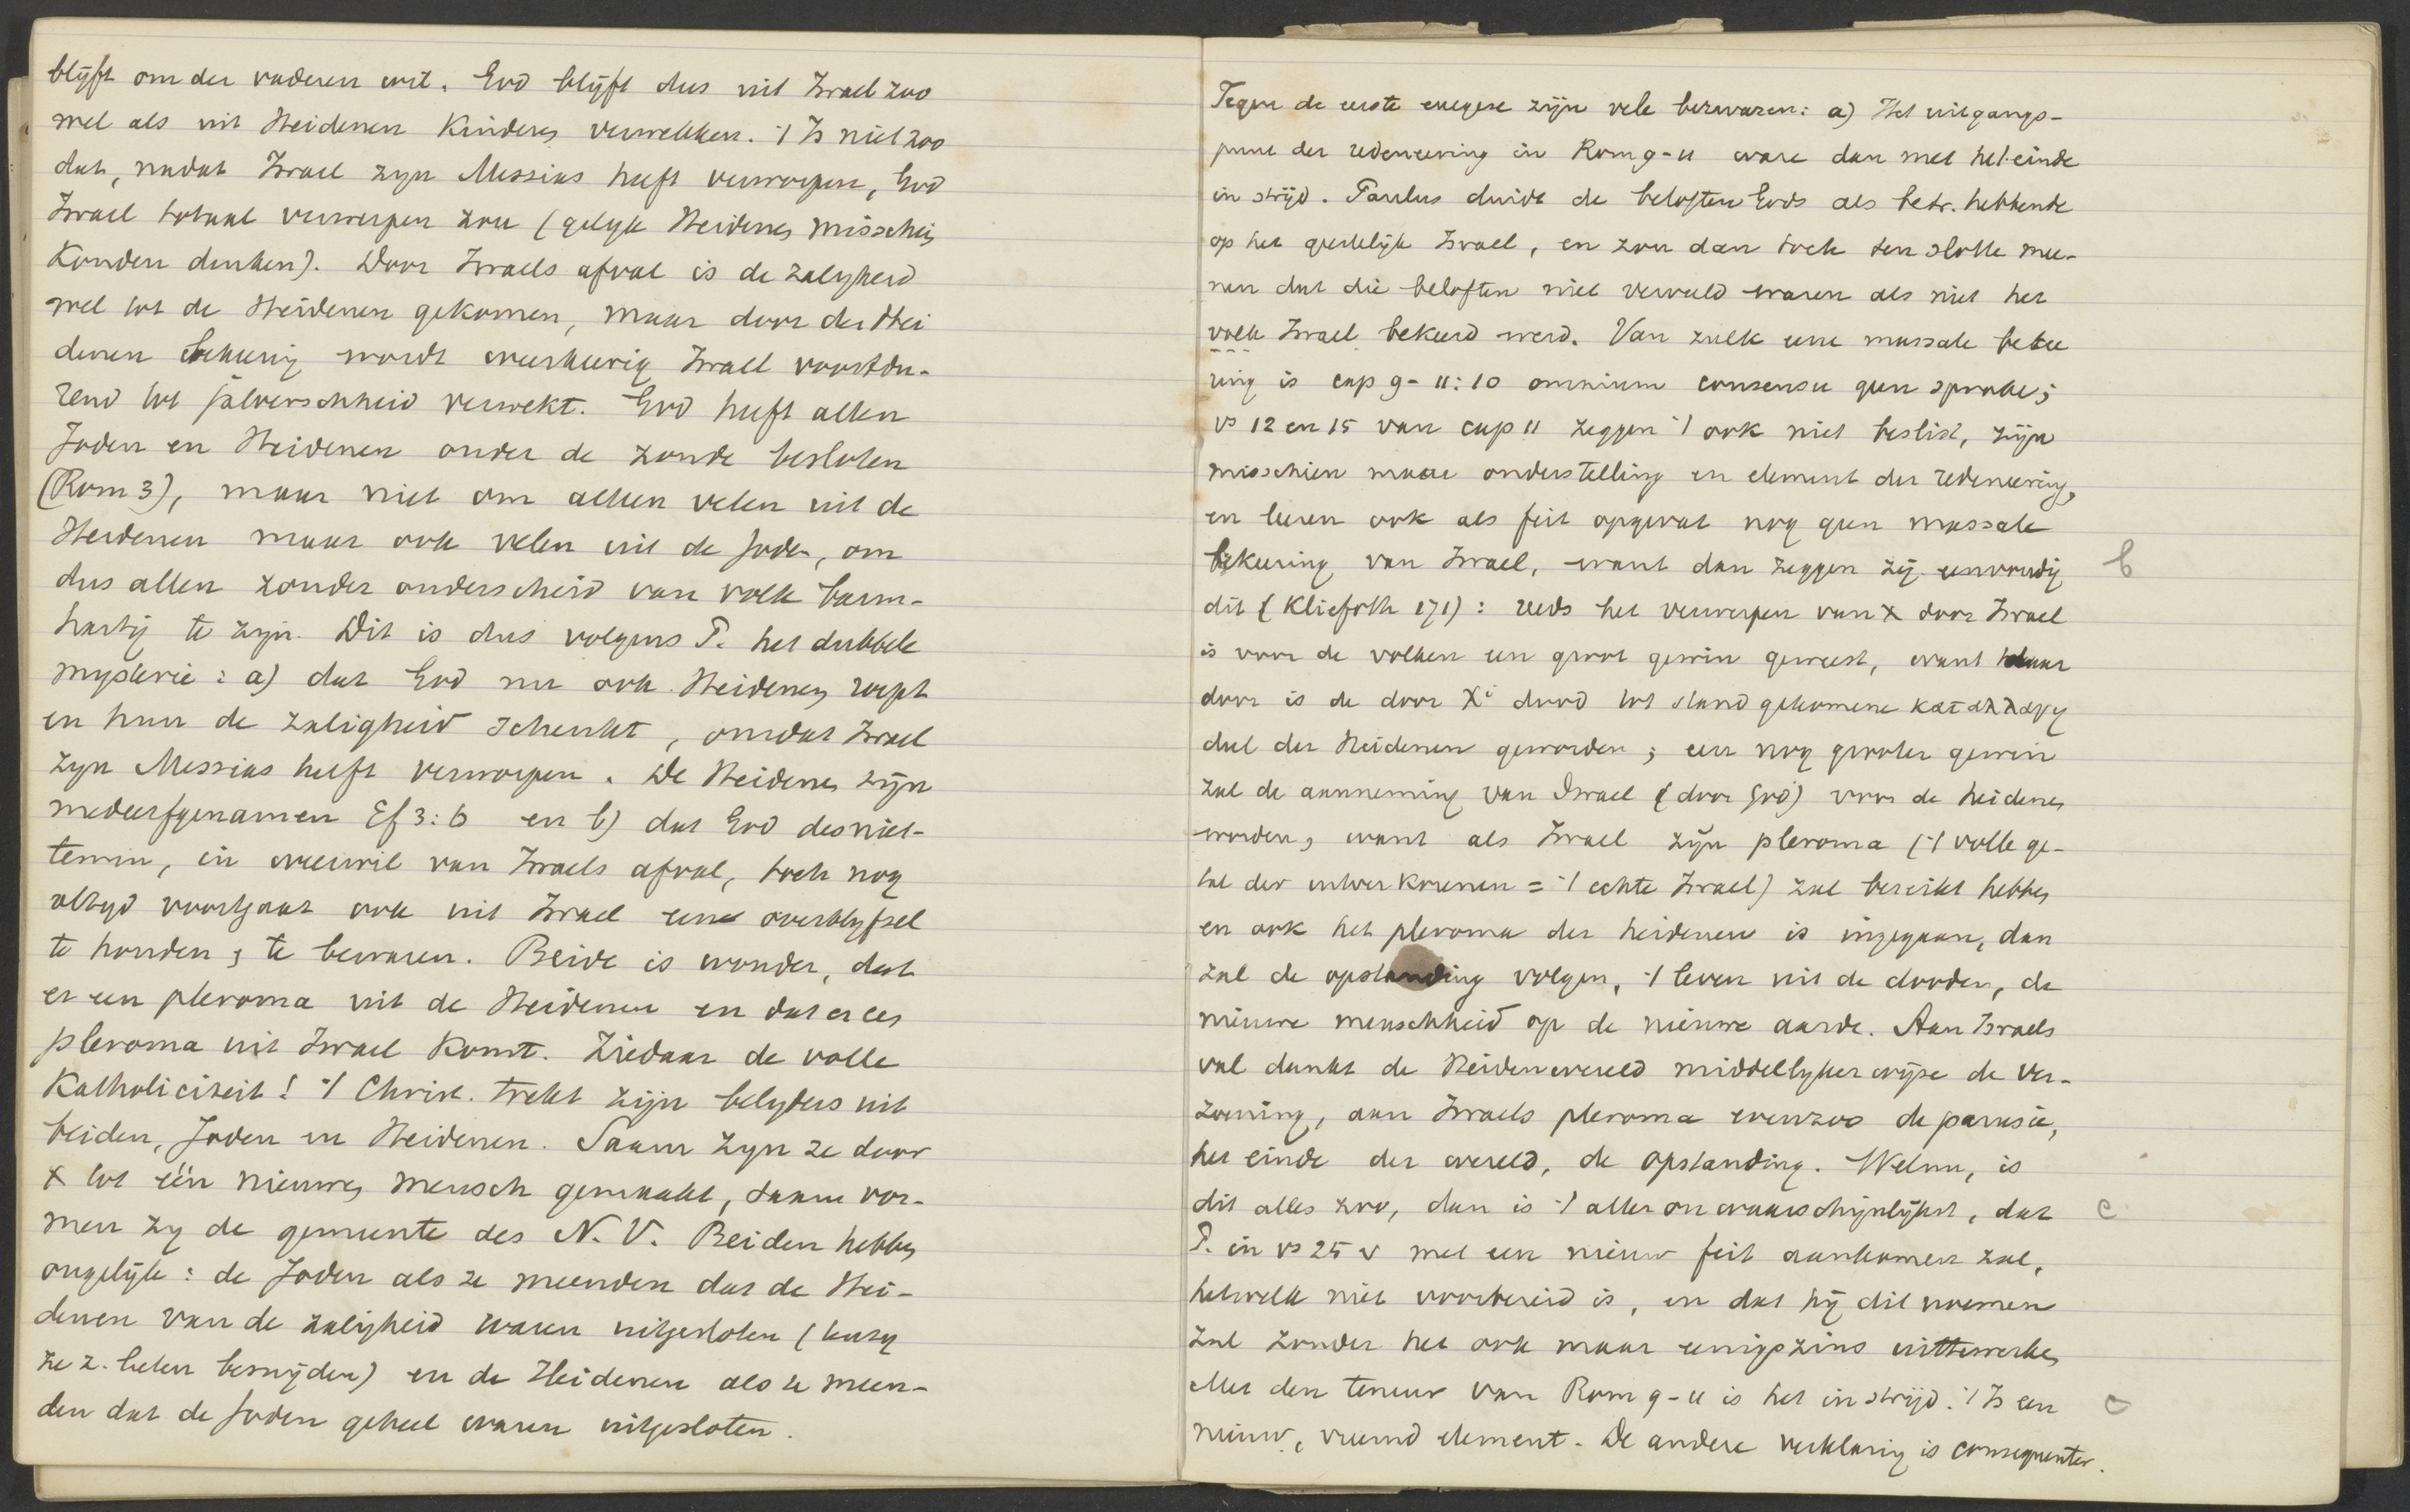 blijft om der vaderen wil. God blijft dus uit Israel zoo
wel als uit Heidenen Kinderen verwekken. 't Is niet zoo
dat, nadat Israel zyn Messias heeft verworpen, God
Israel totaal verwerpen zou (gelyk Heidenen misschien
Konden denken). Door Israels afval is de zaligheid
wel tot de Heidenen gekomen, maar door der Hei
denen bekeering wordt wederkeerig Israel voortdu-
rend tot jaloerschheid verwekt. God heeft allen
Joden en Heidenen onder de zonde besloten
(Rom 3), maar niet om alleen velen uit de
Heidenen maar ook velen uit de Joden, om
dus allen zonder onderscheid van volk barm-
hartig te zyn. Dit is dus volgens P. het dubbele
mysterie: a) dat God nu ook Heidenen roept
en hun de zaligheid schenkt, omdat Israel
zyn Messias heeft verworpen. De Heidenen zijn
medeerfgenamen Ef 3:6 en b) dat God desniet-
temin, in weerwil van Israels afval, toch nog
altyd voortgaat ook uit Israel een overblyfsel
te houden, te bewaren. Beide is wonder, dat
er een pleroma uit de Heidenen en dat er een
pleroma uit Israel komt. Ziedaar de volle
Katholiciteit! 't Christ. trekt zijn belyders uit
beiden, Joden en Heidenen. Saam zyn ze door
X tot één nieuwen mensch gemaakt, saam vor-
men zy de gemeente des N.V. Beiden hebben
ongelijk: de Joden als ze meenden dat de Hei-
denen van de zaligheid waren uitgesloten (tenzy
ze z. lieten besnijden) en de Heidenen als ze meen-
den dat de Joden geheel waren uitgesloten.
Tegen de eerste exegese zijn vele bezwaren: a) Het uitgangs-
punt der redeneering in Rom 9-11 ware dan met het einde
in strijd. Paulus duidt de beloften Gods als betr. hebbende
op het geestelijk Israel, en zou dan toch ten slotte mee-
nen dat die beloften niet vervuld waren als niet het
volk Israel bekeerd werd. Van zulk eene massale bekee
ring is cap 9-11:10 omnium consensu geen sprake;
vs 12 en 15 van cap 11 zeggen 't ook niet beslist, zijn
misschien maar onderstelling en element der redeneering,
en leeren ook als feit opgevat nog geen massale
bekeering van Israel, want dan zeggen zij eenvoudig b
dit (Kliefoth 171): reeds het verwerpen van X door Israel
is voor de volken een groot gewin geweest, want daar
door is de door Xi dood tot stand gekomene καταλλαγη
deel der Heidenen geworden; een nog grooter gewin
zal de aanneming van Israel (door God) voor de heidenen
worden, want als Israel zijn pleroma ('t volle ge-
tal der uitverkorenen = 't echte Israel) zal bereikt hebben
en ook het pleroma der heidenen is ingegaan, dan
zal de opstanding volgen, 't leven uit de dooden, de
nieuwe menschheid op de nieuwe aarde. Aan Israels
val dankt de Heidenwereld middellijkerwijze de ver-
zoening, aan Israels pleroma evenzoo de parusie,
het einde der wereld, de opstanding. Welnu, is
dit alles zoo, dan is 't aller onwaarschijnlijkst, dat c
P. in vs 25 v met een nieuw feit aankomen zal,
hetwelk niet voorbereid is, en dat hij dit noemen
zal zonder het ook maar eenigszins uittewerken
Met den teneur van Rom 9-11 is het in strijd. 't Is een
nieuw, vreemd element. De andere verklaring is consequenter.